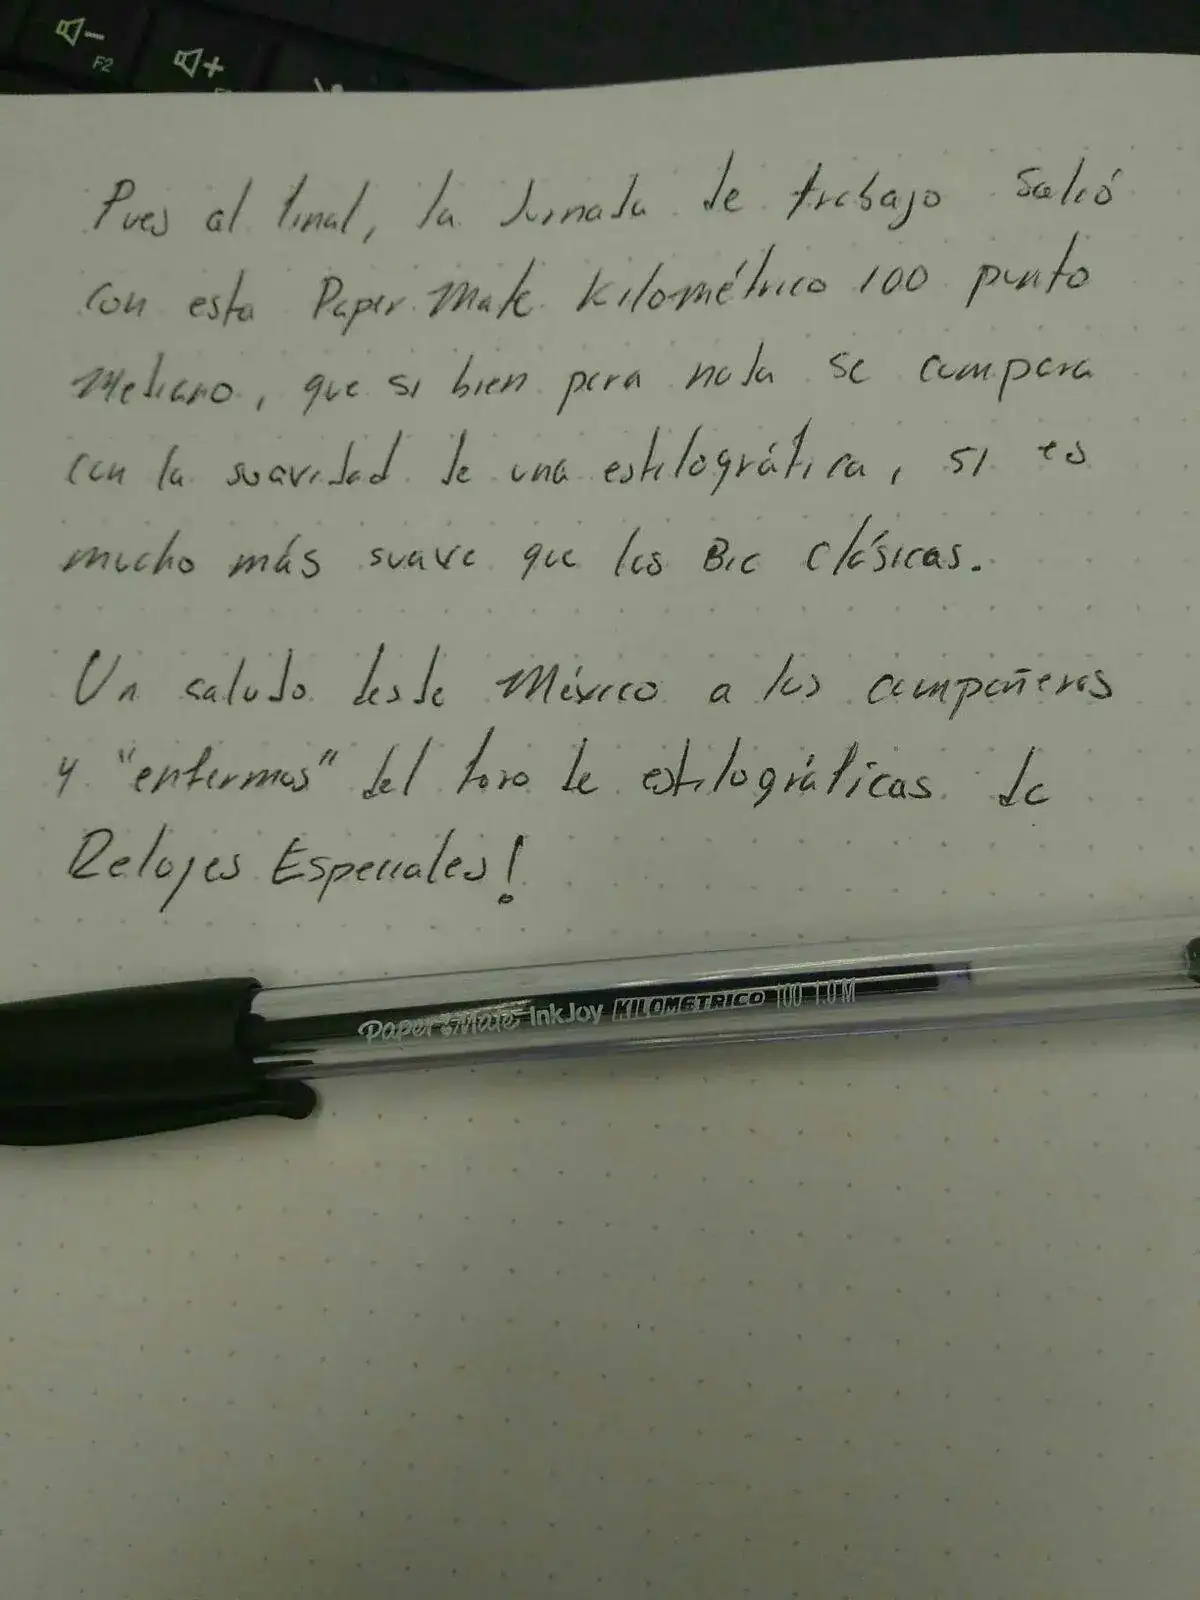 F2
Pues al final, la jornada de trabajo salió
con esta Paper Mate Kilométrico 100 punto
Mediano, que si bien para nada se compara
con la suavidad de una estilográfica, si es
mucho más suave que las Bic Clásicas.
Un saludo desde México a los compañeros
y "enfermos" del foro de estilográficas de
Relojes Especiales!
Paper Mate InkJoy KILOMETRICO 100 1.0 M